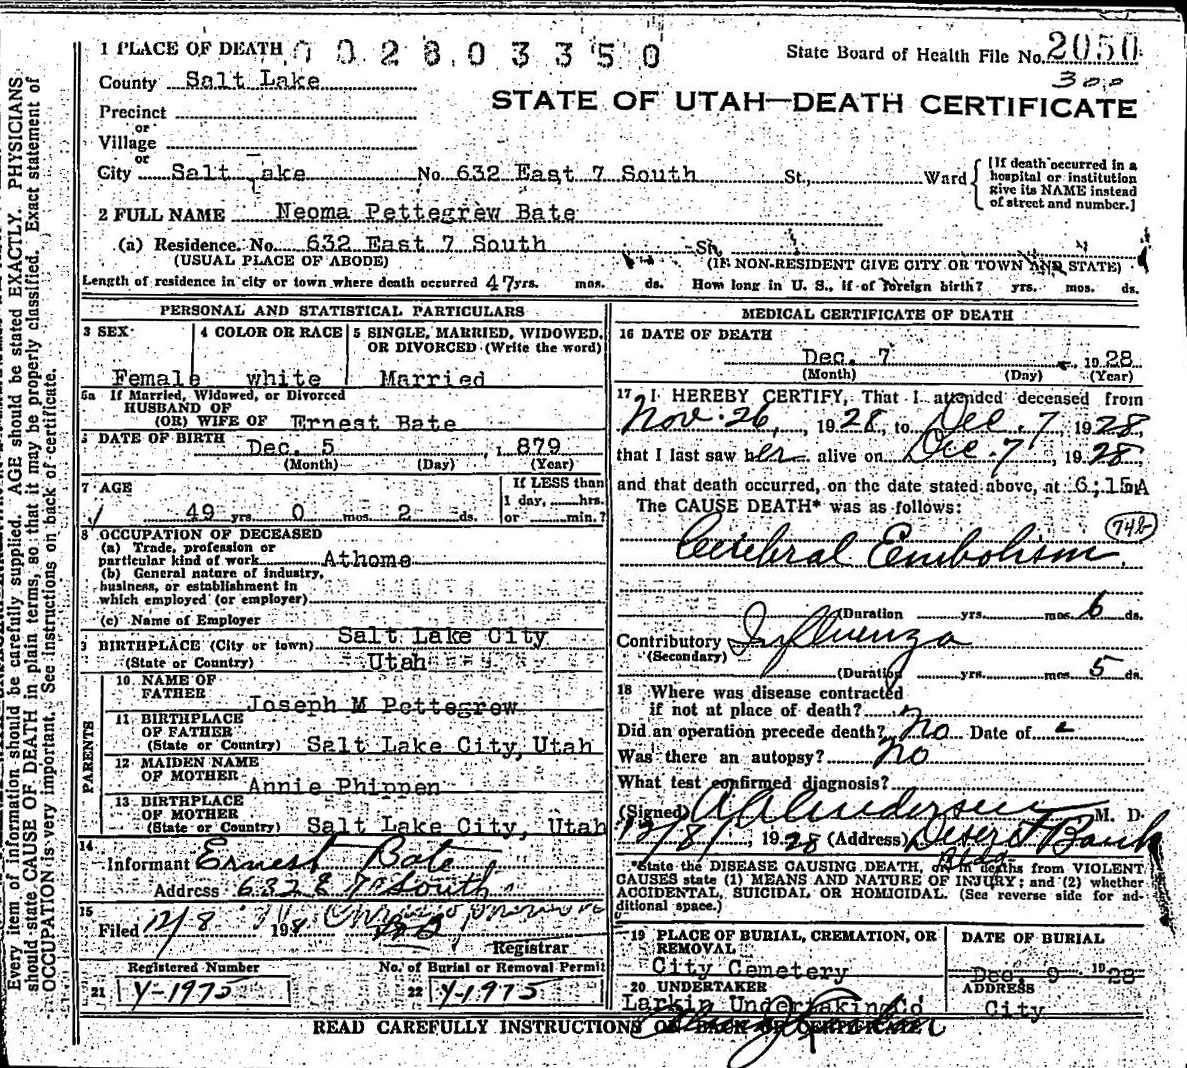 Every item of information should be carefully supplied. AGE should be stated EXACTLY. PHYSICIANS
should state CAUSE OF DEATH in plain terms, so that it may be properly classified. Exact statement of
OCCUPATION is very important. See instructions on back of certificate.
1 PLACE OF DEATH 0 0 2 8 0 3 3 5 0
State Board of Health File No. 2050
300
County Salt Lake
STATE OF UTAH—DEATH CERTIFICATE
Precinct
or
Village
or
City Salt Lake No. 632 East 7 South St., Ward
[If death occurred in a
hospital or institution
give its NAME instead
of street and number.]
2 FULL NAME Neoma Pettegrew Bate
(a) Residence. No. 632 East 7 South St.
(USUAL PLACE OF ABODE) (IF NON-RESIDENT GIVE CITY OR TOWN AND STATE)
Length of residence in city or town where death occurred 47 yrs. mos. ds. How long in U. S., if of foreign birth? yrs. mos. ds.
PERSONAL AND STATISTICAL PARTICULARS
3 SEX 4 COLOR OR RACE 5 SINGLE, MARRIED, WIDOWED,
OR DIVORCED (Write the word)
Female white Married
5a If Married, Widowed, or Divorced
HUSBAND OF
(OR) WIFE OF Ernest Bate
6 DATE OF BIRTH Dec. 5 , 1 879
(Month) (Day) (Year)
7 AGE
49 yrs. 0 mos. 2 ds.
If LESS than
1 day, hrs.
or min.?
8 OCCUPATION OF DECEASED
(a) Trade, profession or
particular kind of work Athome
(b) General nature of industry,
business, or establishment in
which employed (or employer)
(c) Name of Employer
9 BIRTHPLACE (City or town) Salt Lake City
(State or Country) Utah
PARENTS
10 NAME OF
FATHER Joseph M Pettegrew
11 BIRTHPLACE
OF FATHER
(State or Country) Salt Lake City, Utah
12 MAIDEN NAME
OF MOTHER Annie Phippen
13 BIRTHPLACE
OF MOTHER
(State or Country) Salt Lake City, Utah
14
Informant Ernest Bate
Address 632 E 7th South
15
Filed 12/8 192
Registrar
Registered Number No. of Burial or Removal Permit
21 Y-1975 22 Y-1975
MEDICAL CERTIFICATE OF DEATH
16 DATE OF DEATH
Dec. 7 1928
(Month) (Day) (Year)
17 I HEREBY CERTIFY, That I attended deceased from
Nov. 26, 1928, to Dec. 7 1928
that I last saw her alive on Dec. 7, 1928,
and that death occurred, on the date stated above, at 6;15mA
The CAUSE DEATH* was as follows:
74b
Cerebral Embolism.
(Duration yrs. mos. 6 ds.
Contributory Influenza
(Secondary)
(Duration yrs. mos. 5 ds.
18 Where was disease contracted
if not at place of death?
Did an operation precede death? No Date of
Was there an autopsy? No
What test confirmed diagnosis?
(Signed) M. D.
12/8/, 1928 (Address) Deseret Bank
Bldg
*State the DISEASE CAUSING DEATH, or in deaths from VIOLENT
CAUSES state (1) MEANS AND NATURE OF INJURY; and (2) whether
ACCIDENTAL, SUICIDAL OR HOMICIDAL. (See reverse side for ad-
ditional space.)
19 PLACE OF BURIAL, CREMATION, OR
REMOVAL
City Cemetery
DATE OF BURIAL
Dec. 9 1928
20 UNDERTAKER
Larkin Undertaking Co
ADDRESS
City
READ CAREFULLY INSTRUCTIONS ON BACK OF CERTIFICATE